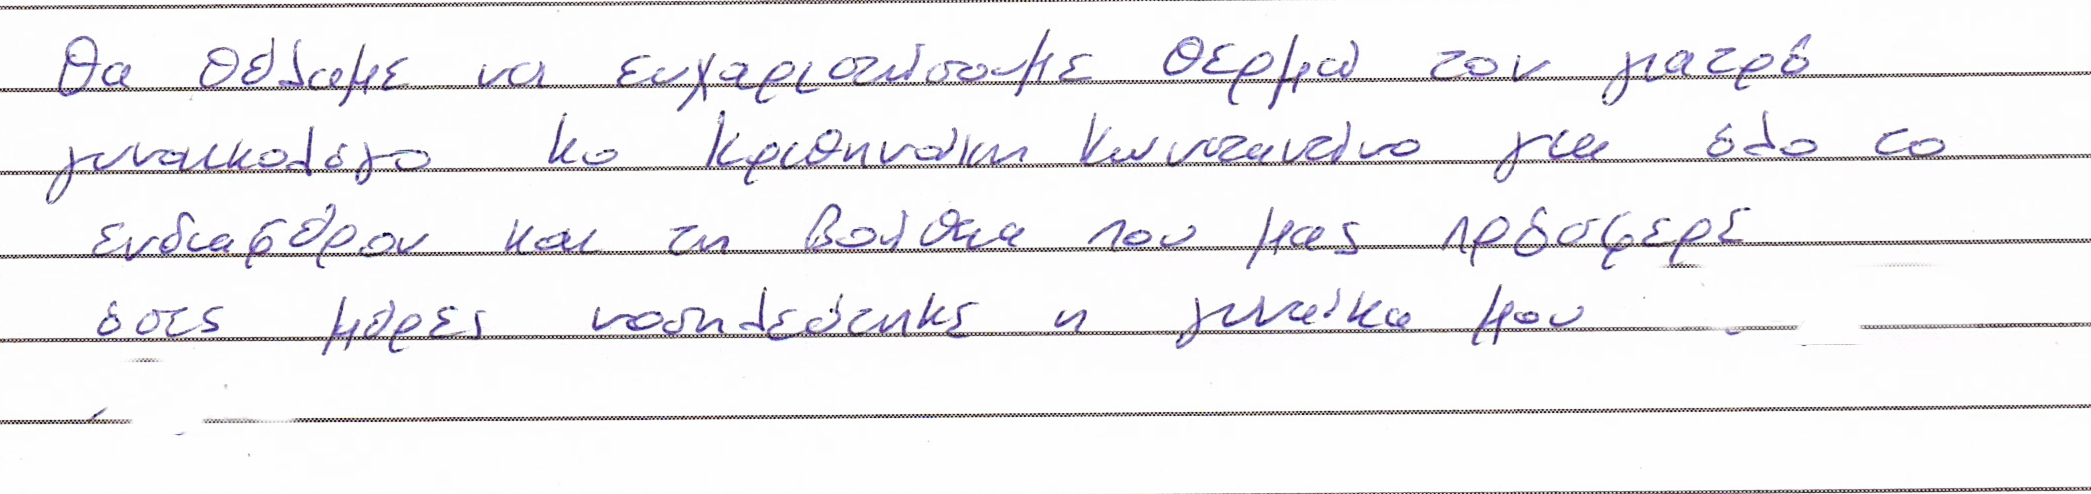 Θα θέλαμε να ευχαριστήσουμε θερμά τον γιατρό
γυναικολόγο κο Κριθηνάκη Κωνσταντίνο για όλο το
ενδιαφέρον και τη βοήθεια που μας πρόσφερε
όσες μέρες νοσηλεύτηκε η γυναίκα μου